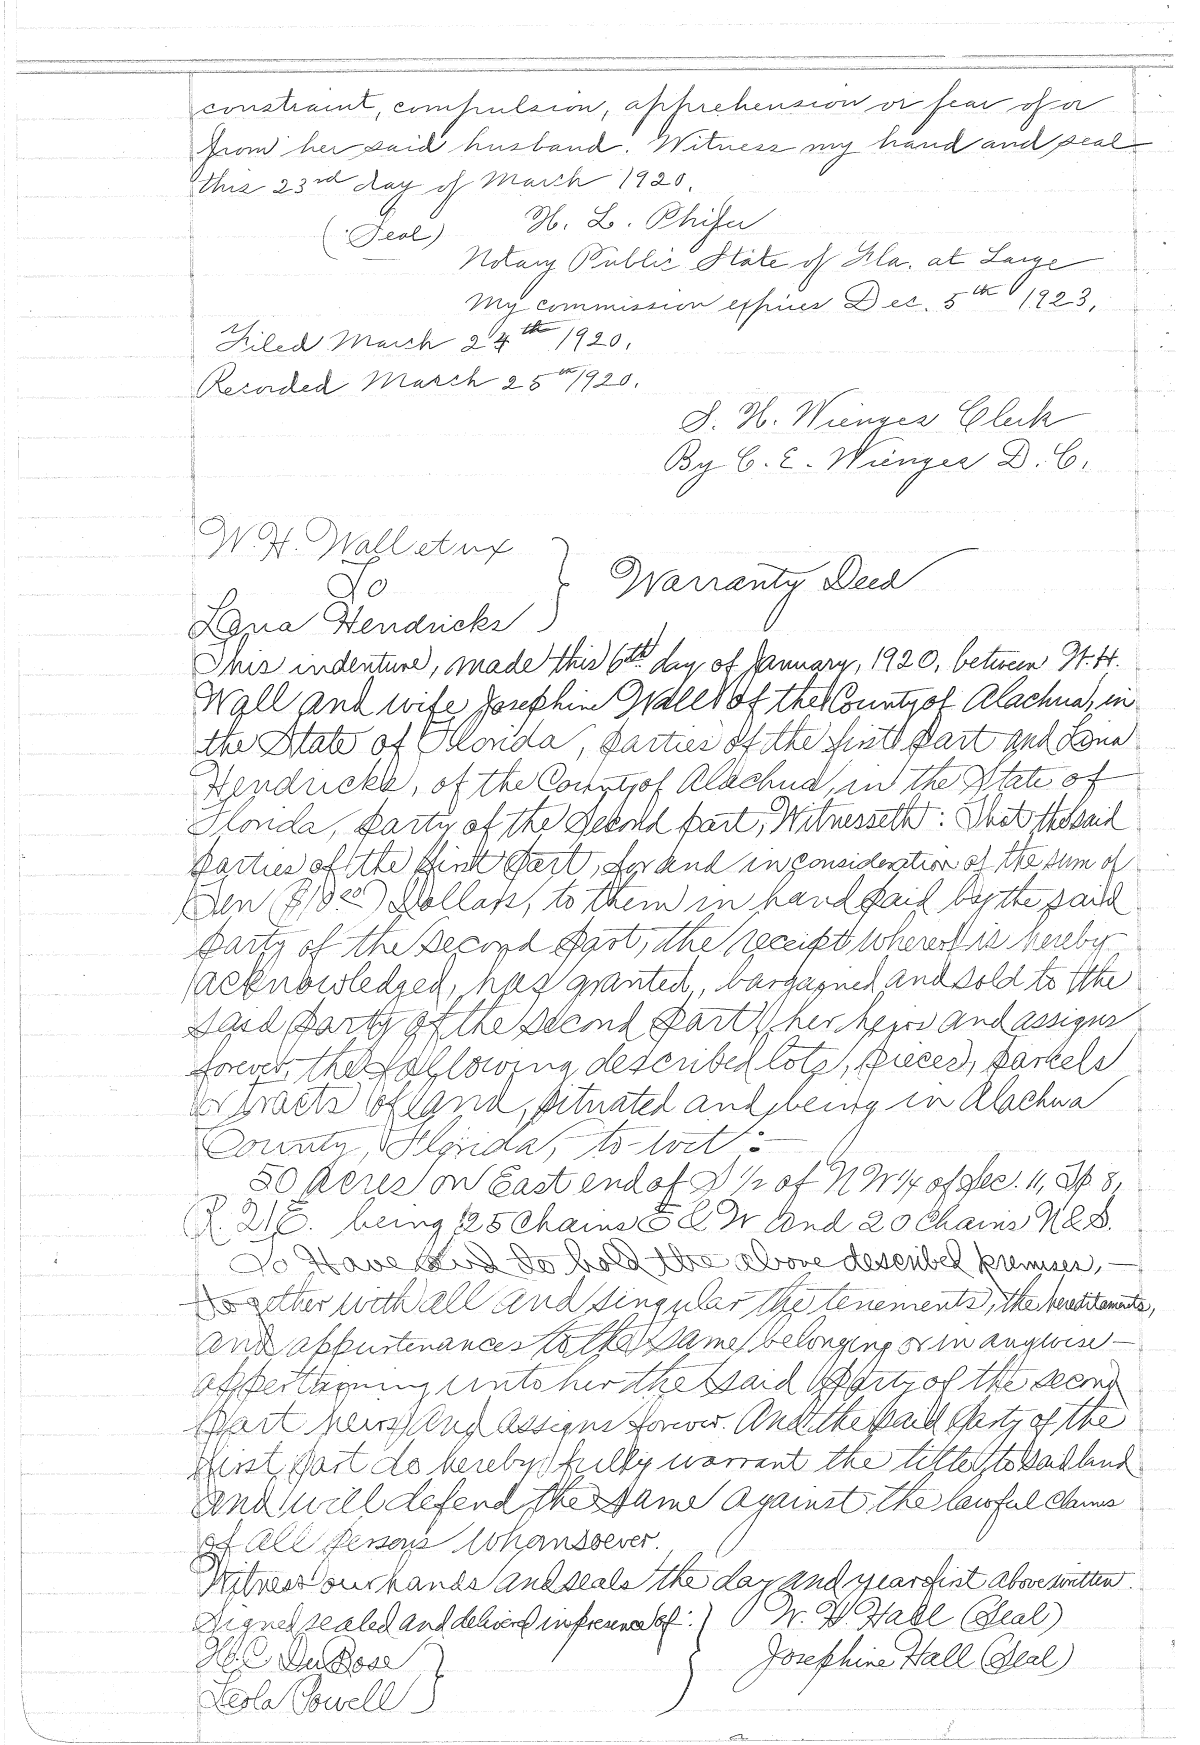 constraint, compulsion, apprehension or fear of or
from her said husband. Witness my hand and seal
this 23rd day of March 1920.
(Seal) H. L. Phifer
Notary Public State of Fla. at Large
My commission expires Dec. 5th 1923.
Filed March 24th 1920.
Recorded March 25th 1920.
S. H. Wienges Clerk
By C. E. Wienges D. C.
W. H. Wall et ux
To } Warranty Deed
Lena Hendricks
This indenture, made this 6th day of January, 1920, between W. H.
Wall and wife Josephine Wall of the County of Alachua, in
the State of Florida, parties of the first part and Lena
Hendricks, of the County of Alachua, in the State of
Florida, party of the second part, Witnesseth: That the said
parties of the first part, for and in consideration of the sum of
Ten ($10.00) Dollars, to them in hand paid by the said
party of the second part, the receipt whereof is hereby
acknowledged, has granted, bargained and sold to the
said party of the second part, her heirs and assigns
forever, the following described lots, pieces, parcels
or tracts of land, situated and being in Alachua
County, Florida, to-wit:-
50 acres on East end of S 1/2 of NW 1/4 of Sec. 11, Tp 8,
R. 21 E. being 25 Chains E & W and 20 Chains N & S.
To Have and to hold the above described premises,-
together with all and singular the tenements, the hereditaments,
and appurtenances to the same belonging or in anywise-
appertaining unto her the said party of the second
part heirs and assigns forever. And the said party of the
first part do hereby fully warrant the title to said land
and will defend the same against the lawful claims
of all persons whomsoever.
Witness our hands and seals the day and year first above written.
Signed sealed and delivered in presence of: } W. H. Hall (Seal)
H. C. DuBose } Josephine Hall (Seal)
Leola Powell